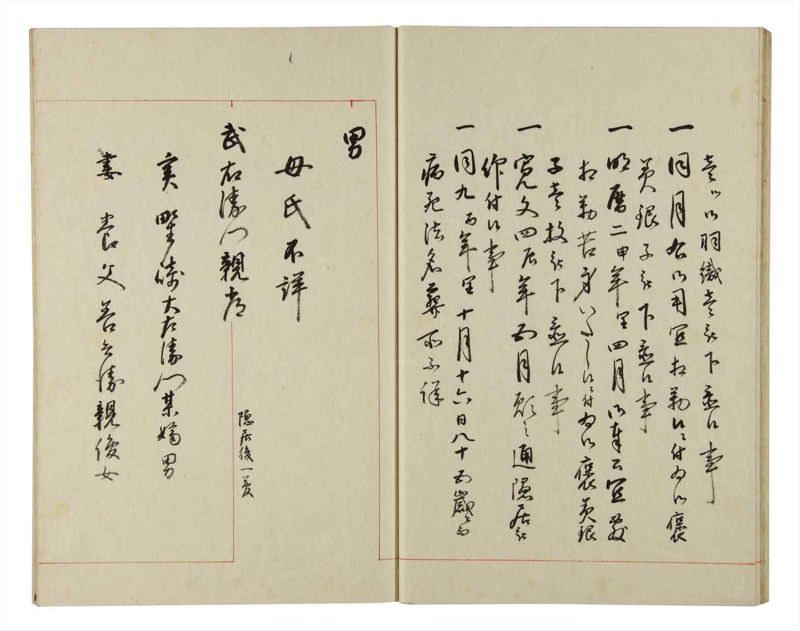 壱ツ御羽織壱被下置候事
一同月右御用宜相勤候ニ付為御褒
美銀子被下置候事
一明暦二申年閏四月御奉公宜敷
相勤苦身いたし候ニ付為御褒美銀
子壱枚被下置候事
一寛文四辰年五月願之通隠居被
仰付候事
一同九酉年閏十月十六日八十五歳ニ而
病死法名葬所不詳
男
母氏不詳
武右衛門親
隠居後一
実野崎大右衛門某嫡男
妻養父善兵衛親俊女